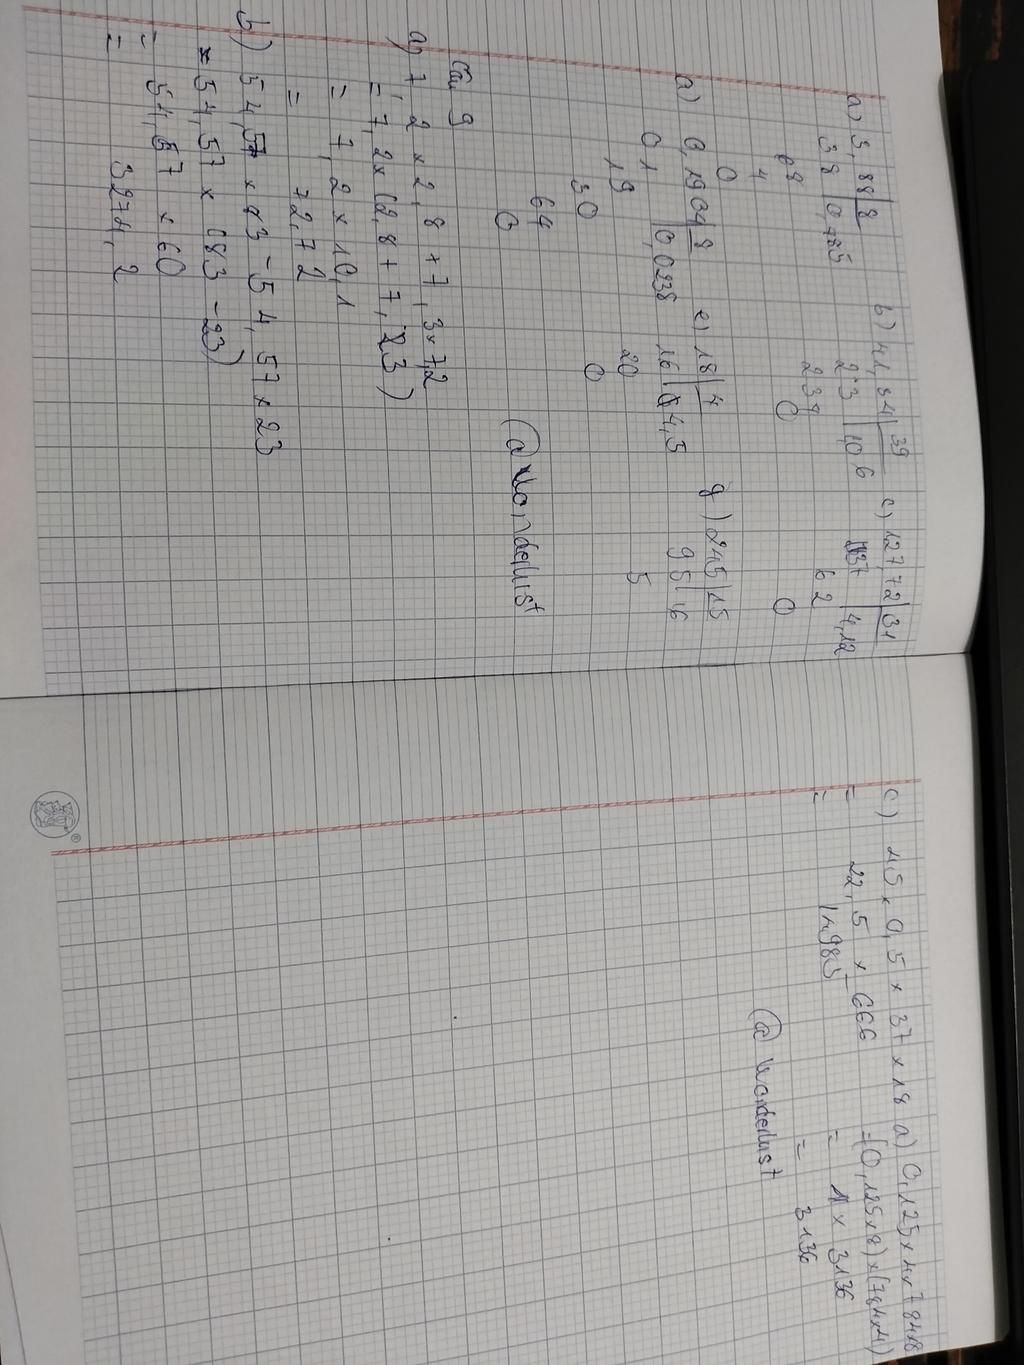 a) 3,88 | 8
38 | 0,485
68
4
b) 41,34 | 39
23 | 1,06
234
0
c) 127,72 | 31
37 | 4,12
62
0
d) 0,1904 | 8
0
0 1 | 0,0238
19
30
64
0
e) 18 | 4
16 | 4,5
20
0
g) 245 | 15
95 | 16
5
@wanderlust
Câu 9
a) 7,2 x 2,8 + 7,3 x 7,2
= 7,2 x (2,8 + 7,3)
= 7,2 x 10,1
= 72,72
b) 54,57 x 83 - 54,57 x 23
= 54,57 x (83 - 23)
= 54,57 x 60
= 3274,2
c) 45 x 0,5 x 37 x 18
= 22,5 x 666
= 14985
d) 0,125 x 4 x 784 x 8
= (0,125 x 8) x (784 x 4)
= 1 x 3136
= 3136
@wanderlust